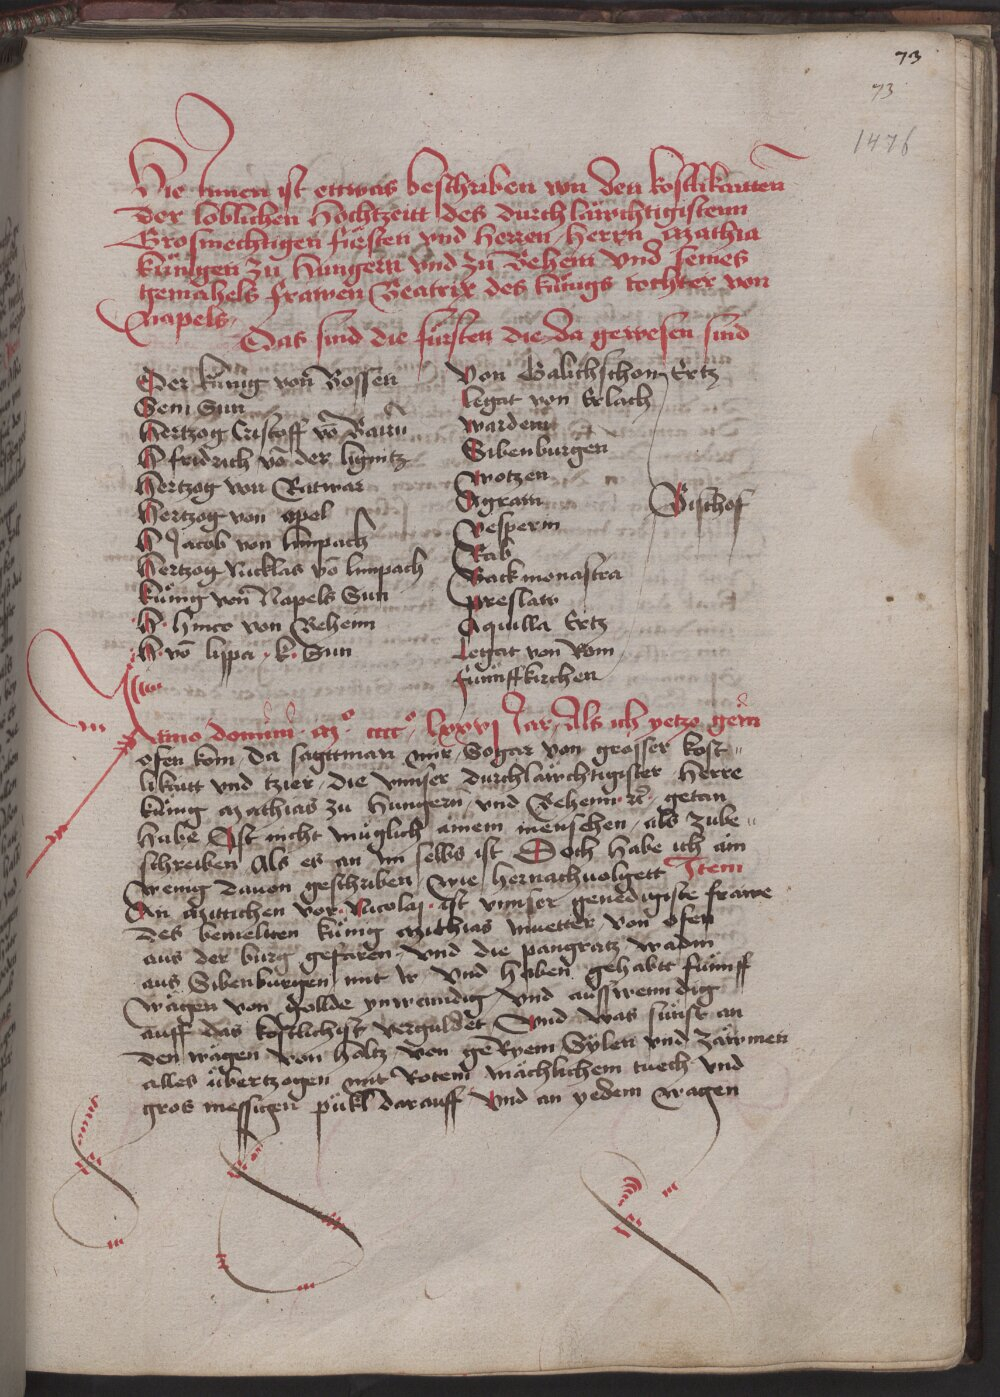 73
73
1476
Hie Innen ist ettwas beschriben von den kostlikaiten
der loblichen Hochtzeitt des durchläwchtigisten
Grosmechtigen fürsten vnd Herren Herrn Mathia
künigen zu Hungern vnd zu Behem vnd seines
gemahels frawen Beatrix des künigs tochter von
Napels
Das sind die fürsten die da gewesen sind
Der künig von Bossen
Sein Sun
Hertzog Cristoff vō Bairn
H fridrich vō der lignitz
Hertzog von Ratwar
Hertzog von opel
H Jacob von limpach
Hertzog Nicklas vō limpach
künig von Napels Sun
H. Hinco von Behem
H. vō lippa . k. Sun
Von Galichschon Ertz
legat von Erlach
wardein
Sibenburgen
wotzen
Agram
Vesperin
Rab
Wackmonastra
preslaw
Aquilla Ertz
Legat von Rom
fünffkirchen
Bischof
Anno domini . Mº . ccccº . lxxvj Jar. Als ich yetzo gein
ofen kom, da sagt man mir, Sogar von grosser kost=
likaitt vnd tzier, die vnnser durchläwchtigister Herre
künig Mathias zu Hungern, vnd Behem rc. getan
habe Ist nicht müglich ainem menschen, als zube=
schreiben Als es an im selbs ist Doch habe ich ain
wenig dauon geschriben, wie hernachuolgett Item
An Mittichen vor Nicolaj . ist vnnser genedigiste frawe
des bemelten künig Mathias muetter von ofen
aus der burg gefaren, Vnd die pangratz wadin
aus Sibenburgen mit Ir Vnd haben gehabtt fünff
wägen von gollde ynwendig vnd ausswenndig
auff das kostlichist verguldet, Vnd was sünst an
den wägen von holtz, von geRyem Sylen vnd Zäwmen
alles übertzogen mit Rotem mächlichem tuech vnd
gros messigen pükl darauff, Vnd an yedem wagen